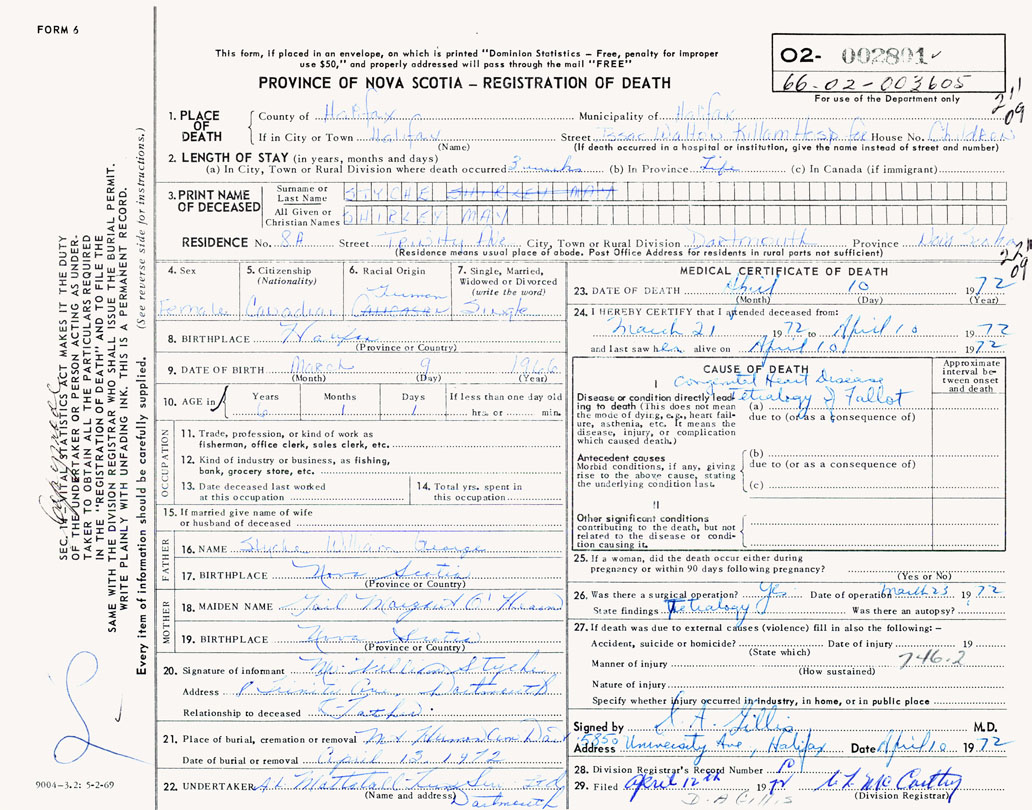 FORM 6
This form, if placed in an envelope, on which is printed "Dominion Statistics – Free, penalty for improper
use $50," and properly addressed will pass through the mail "FREE"
PROVINCE OF NOVA SCOTIA – REGISTRATION OF DEATH
O2- 002801
66-02-003605
For use of the Department only
211
09
1. PLACE OF DEATH
County of Halifax Municipality of Halifax
If in City or Town Halifax Street Isaac Walton Killam Hosp for House No. Children
(Name) (If death occurred in a hospital or institution, give the name instead of street and number)
2. LENGTH OF STAY (in years, months and days)
(a) In City, Town or Rural Division where death occurred 3 weeks (b) In Province Life (c) In Canada (if immigrant)
3. PRINT NAME OF DECEASED
Surname or Last Name STYCHE SHIRLEY MAY
All Given or Christian Names SHIRLEY MAY
RESIDENCE No. 8A Street Trinity Ave City, Town or Rural Division Dartmouth Province Nova Scotia
(Residence means usual place of abode. Post Office Address for residents in rural parts not sufficient)
09
4. Sex
Female
5. Citizenship
(Nationality)
Canadian
6. Racial Origin
German
Caucasian
7. Single, Married,
Widowed or Divorced
(write the word)
Single
8. BIRTHPLACE Halifax
(Province or Country)
9. DATE OF BIRTH March 9 1966
(Month) (Day) (Year)
10. AGE in
Years Months Days If less than one day old
6 1 1 hrs. or min.
OCCUPATION
11. Trade, profession, or kind of work as
fisherman, office clerk, sales clerk, etc.
12. Kind of industry or business, as fishing,
bank, grocery store, etc.
13. Date deceased last worked
at this occupation
14. Total yrs. spent in
this occupation
15. If married give name of wife
or husband of deceased
FATHER
16. NAME Styche William George
17. BIRTHPLACE Nova Scotia
(Province or Country)
MOTHER
18. MAIDEN NAME Gail Margaret O'Hearn
19. BIRTHPLACE Nova Scotia
(Province or Country)
20. Signature of informant Mr. William Styche
Address Trinity Ave, Dartmouth
Relationship to deceased Father
21. Place of burial, cremation or removal
Date of burial or removal April 12 1972
22. UNDERTAKER
(Name and address)
Dartmouth
MEDICAL CERTIFICATE OF DEATH
23. DATE OF DEATH April 10 1972
(Month) (Day) (Year)
24. I HEREBY CERTIFY that I attended deceased from:
March 21 1972 to April 10 1972
and last saw her alive on April 10 1972
CAUSE OF DEATH
Approximate
interval be-
tween onset
and death
I
Congenital Heart Disease
Disease or condition directly lead-
ing to death (This does not mean
the mode of dying, e.g., heart fail-
ure, asthenia, etc. It means the
disease, injury, or complication
which caused death.)
Tetralogy of Fallot
(a)
due to (or as a consequence of)
Antecedent causes
Morbid conditions, if any, giving
rise to the above cause, stating
the underlying condition last.
(b)
due to (or as a consequence of)
(c)
II
Other significant conditions
contributing to the death, but not
related to the disease or condi-
tion causing it.
25. If a woman, did the death occur either during
pregnancy or within 90 days following pregnancy?
(Yes or No)
26. Was there a surgical operation? Yes Date of operation March 23 1972
State findings Tetralogy Was there an autopsy?
27. If death was due to external causes (violence) fill in also the following: –
Accident, suicide or homicide? Date of injury 19
(State which)
746.2
Manner of injury
(How sustained)
Nature of injury
Specify whether injury occurred in industry, in home, or in public place
Signed by Gillis M.D.
Address 5850 University Ave, Halifax Date April 10 1972
28. Division Registrar's Record Number
29. Filed April 12th 1972 McCarthy
D A Gillis (Division Registrar)
SEC. 14 VITAL STATISTICS ACT MAKES IT THE DUTY
OF THE UNDERTAKER OR PERSON ACTING AS UNDER-
TAKER TO OBTAIN ALL THE PARTICULARS REQUIRED
IN THE "REGISTRATION OF DEATH" AND TO FILE THE
SAME WITH THE DIVISION REGISTRAR WHO SHALL ISSUE THE BURIAL PERMIT.
WRITE PLAINLY WITH UNFADING INK. THIS IS A PERMANENT RECORD.
Every item of information should be carefully supplied. (See reverse side for instructions.)
9004-3.2: 5-2-69